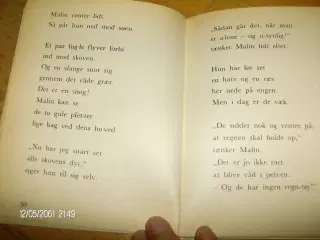 Malin venter lidt.
Så går hun ned mod søen.
Et par fug-le flyver forbi
ind mod skoven.
Og en slange snor sig
gennem det våde græs.
Det er en snog!
Malin kan se
de to gule pletter
lige bag ved dens ho-ved.
„Nu har jeg snart set
alle skovens dyr,"
siger hun til sig selv.
30
12/05/2061 21:49
„Sådan går det, når man
er a-lene – og u-synlig!"
tænker Malin lidt efter.
Hun har før set
en hare og en ræv
her nede på engen
Men i dag er de væk.
„De sidder nok og venter på,
at regnen skal holde op,"
tænker Malin.
„Det er jo ikke rart
at blive våd i pelsen.
– Og de har ingen regn-tøj."